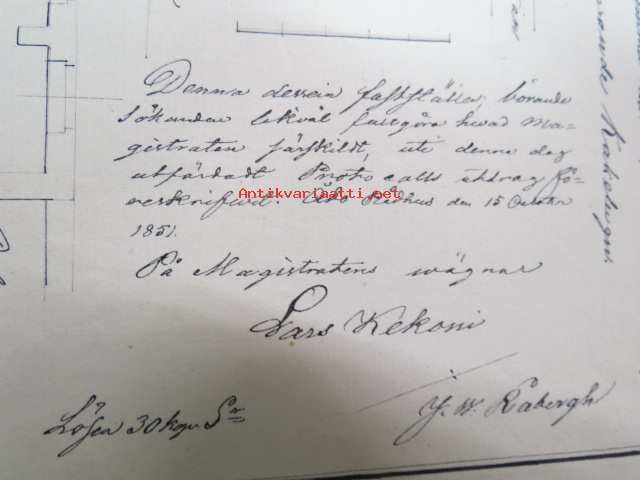 Denna dessein fastställes, börande
Sökanden likväl fullgöra hvad Ma=
gistraten särskildt, uti denna dag
utfärdadt Protocolls utdrag fö=
reskrifvid. Åbo Rådhus den 15 October
1851.
På Magistratens wägnar
Lars Kekoni
J. W. Rabergh
Lösen 30 kop. Sr
rande Kakelugn.
Antikvariaatti.net